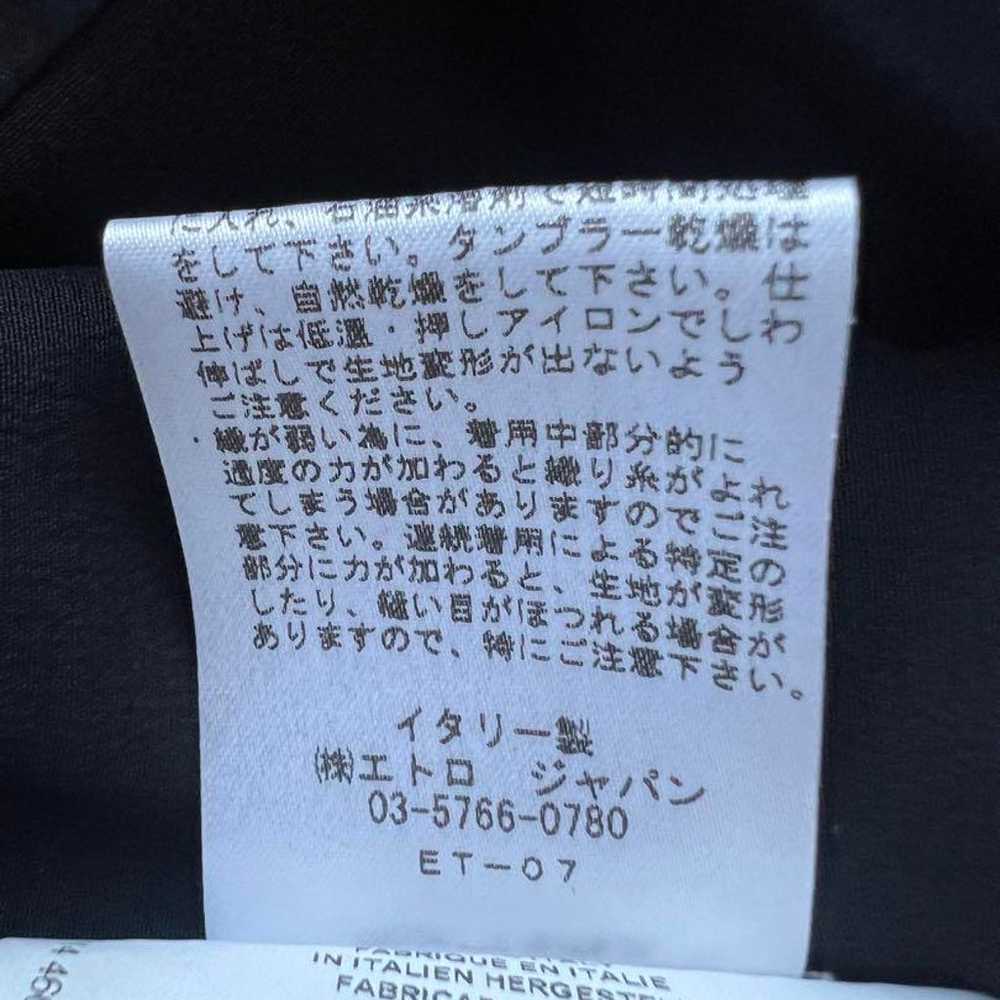 に入れ、石油系溶剤で短時間処理
をして下さい。タンブラー乾燥は
避け、自然乾燥をして下さい。仕
上げは低温・押しアイロンでしわ
伸ばしで生地変形が出ないよう
ご注意ください。
・繊が弱い為に、着用中部分的に
過度の力が加わると織り糸がよれ
てしまう場合がありますのでご注
意下さい。連続着用による特定の
部分に力が加わると、生地が変形
したり、縫い目がほつれる場合が
ありますので、特にご注意下さい。
イタリー製
(株)エトロ ジャパン
03-5766-0780
ET-07
FABRIQUE EN ITALIE
IN ITALIEN HERGESTE